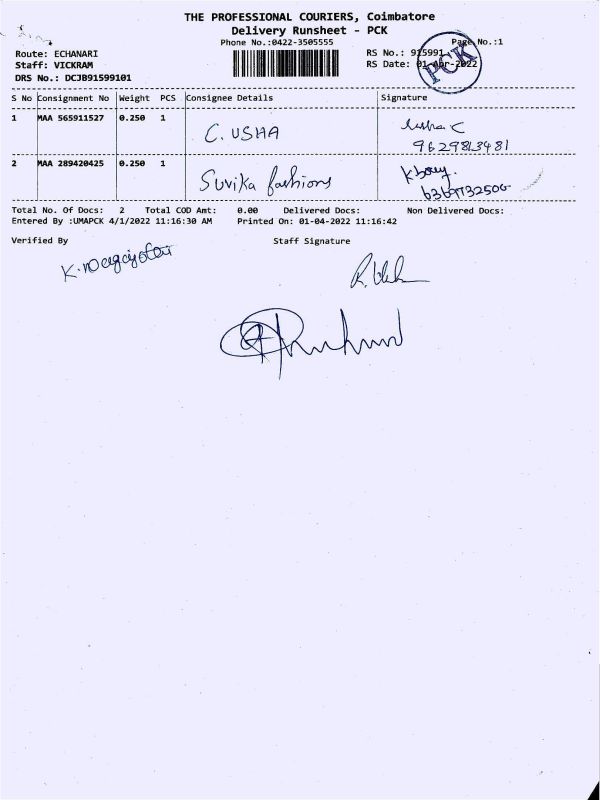 THE PROFESSIONAL COURIERS, Coimbatore
Delivery Runsheet - PCK
Phone No.:0422-3505555
Page No.:1
Route: ECHANARI
RS No.: 915991
Staff: VICKRAM
RS Date: 01-Apr-2022
PCK
DRS No.: DCJB91599101
S No Consignment No Weight PCS Consignee Details Signature
1 MAA 565911527 0.250 1 C. USHA Usha. C
9629813481
2 MAA 289420425 0.250 1 Suvika fashions
Total No. Of Docs: 2 Total COD Amt: 0.00 Delivered Docs: Non Delivered Docs:
Entered By :UMAPCK 4/1/2022 11:16:30 AM Printed On: 01-04-2022 11:16:42
Verified By Staff Signature